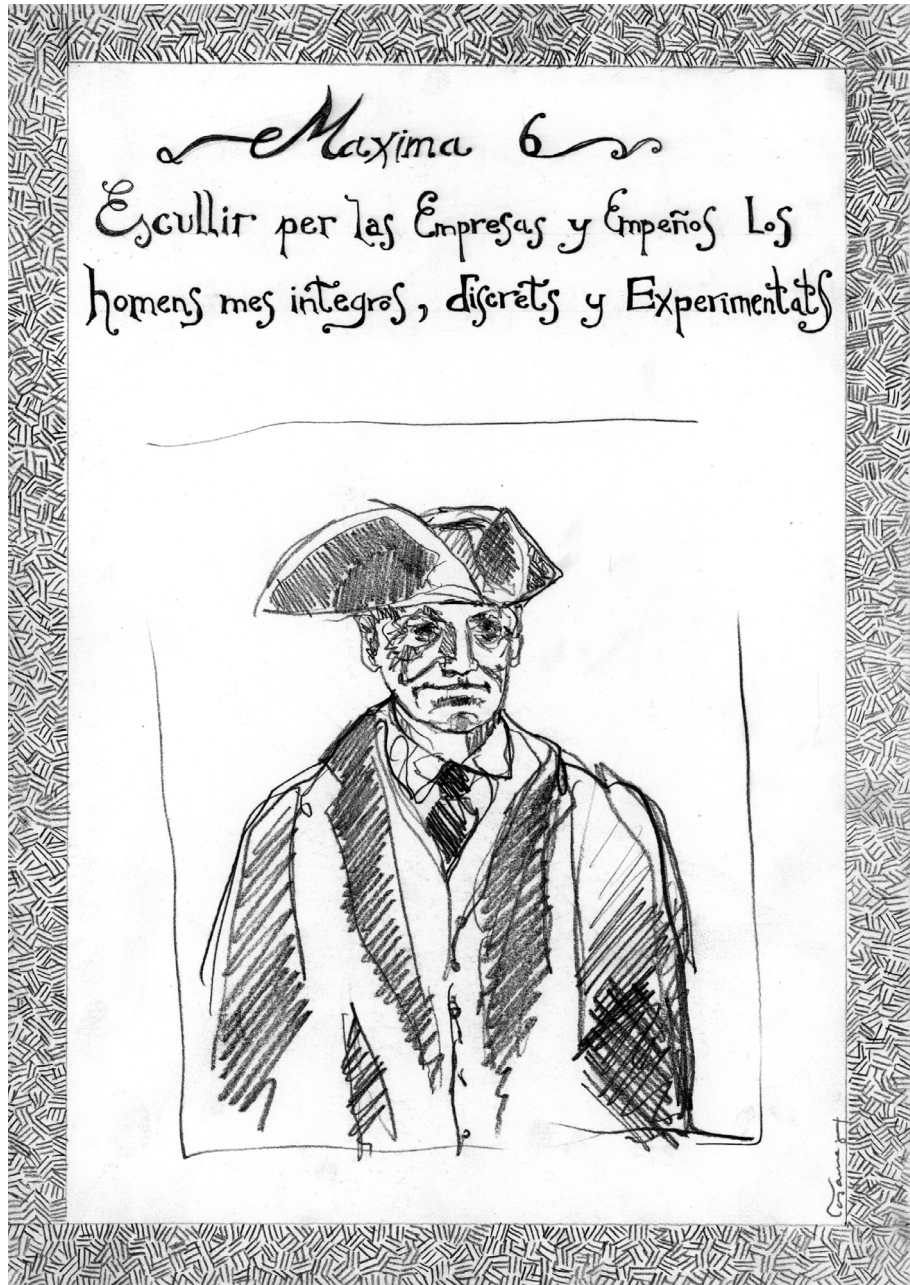 Maxima 6
Escullir per las Empresas y Empeños Los
homens mes integros, discrets y Experimentats